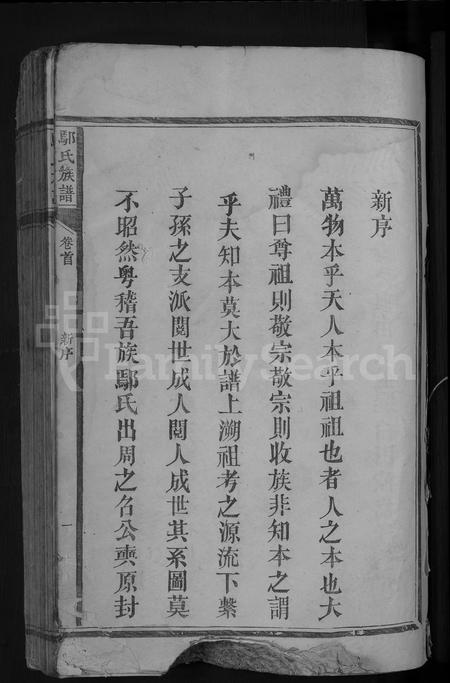 新序
萬物本乎天人本乎祖祖也者人之本也大
禮曰尊祖則敬宗敬宗則收族非知本之謂
乎夫知本莫大於譜上溯祖考之源流下繫
子孫之支派閱世成人閱人成世其系圖莫
不昭然粤稽吾族鄢氏出周之名公奭原封
鄢氏族譜
卷首
新序
一
FamilySearch